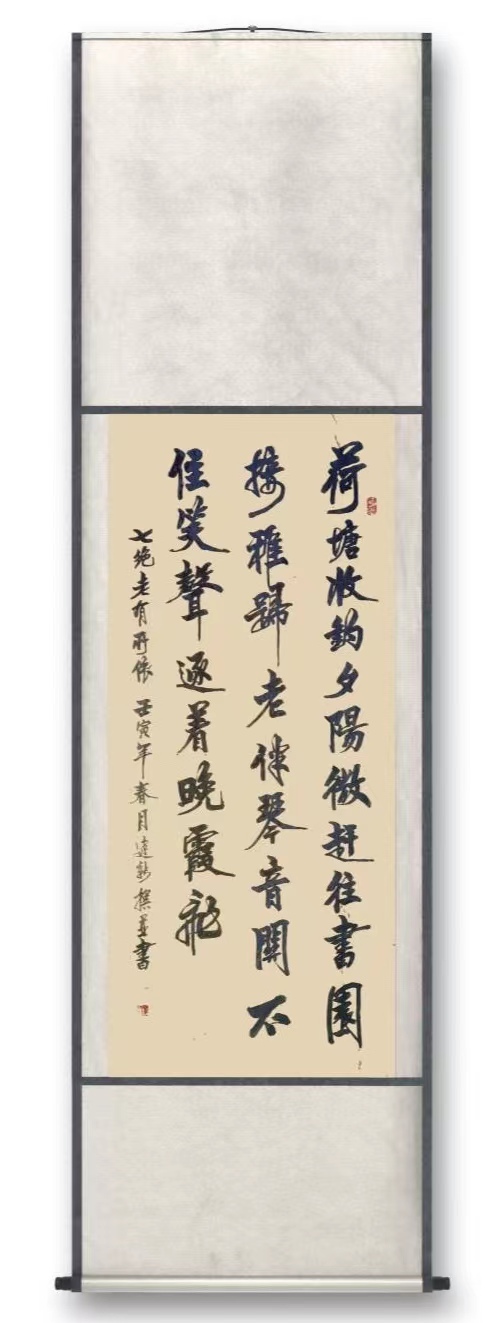 荷塘收鈎夕陽微赶往書園
接雅歸老伴琴音關不
住笑聲逐着晚霞飛
七絕老有所依 壬寅年春月撰並書